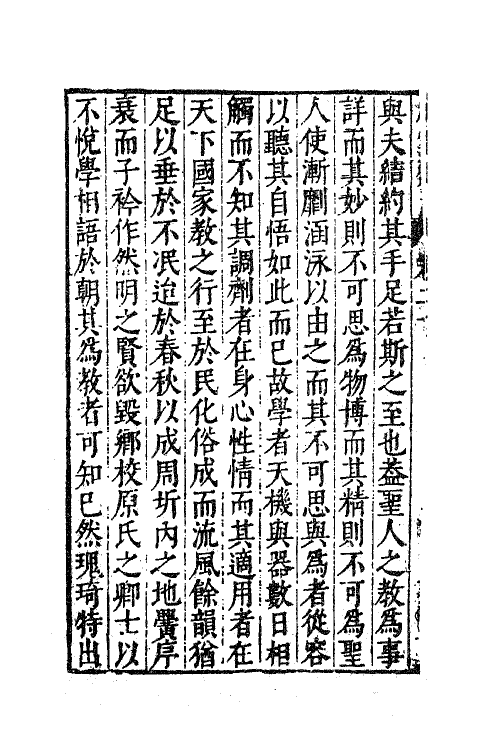 與夫結約其手足若斯之至也葢聖人之教爲事
詳而其妙則不可思爲物博而其精則不可爲聖
人使漸劘涵泳以由之而其不可思與爲者從容
以聽其自悟如此而已故學者天機與器數日相
觸而不知其調劑者在身心性情而其適用者在
天下國家教之行至於民化俗成而流風餘韻猶
足以垂於不泯迨於春秋以成周圻内之地黌序
衰而子衿作然明之賢欲毀鄉校原氏之卿士以
不悅學相語於朝其爲教者可知已然瑰琦特出